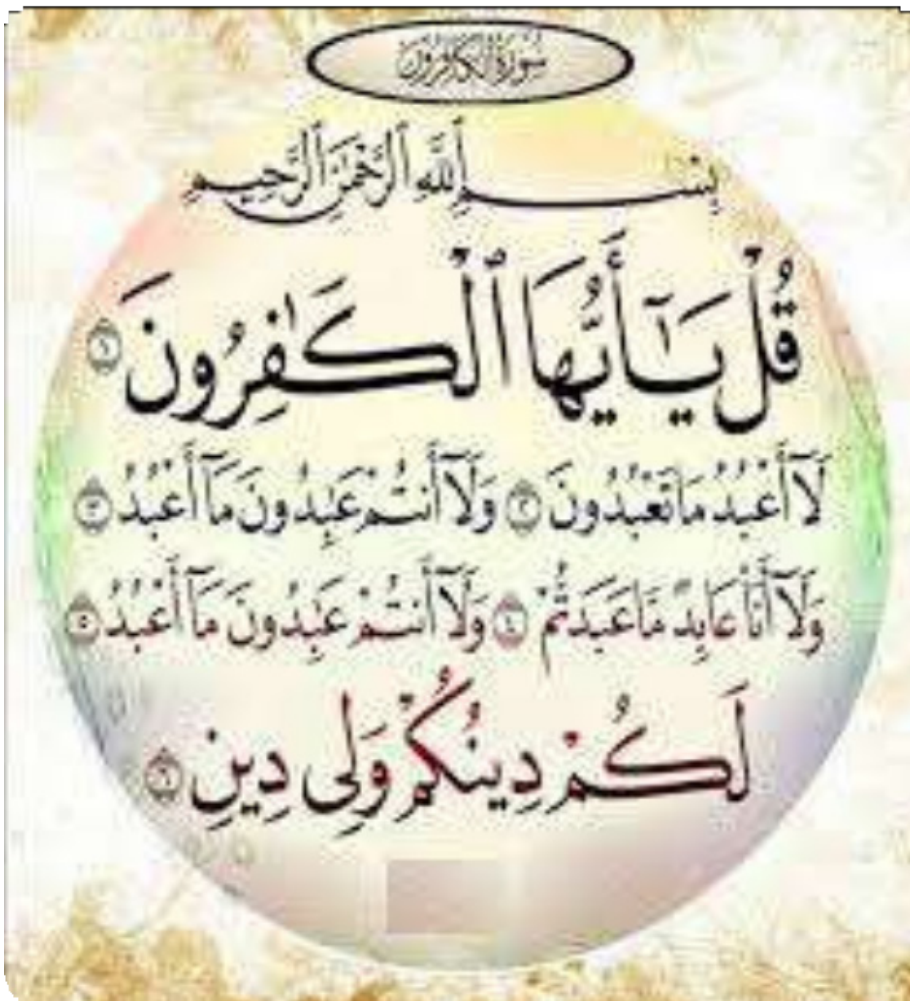 سُورَةُ الْكَافِرُونَ
بِسْمِ ٱللَّهِ ٱلرَّحْمَٰنِ ٱلرَّحِيمِ
قُلْ يَـٰٓأَيُّهَا ٱلْكَـٰفِرُونَ ١
لَآ أَعْبُدُ مَا تَعْبُدُونَ ٢ وَلَآ أَنتُمْ عَـٰبِدُونَ مَآ أَعْبُدُ ٣
وَلَآ أَنَا۠ عَابِدٌ مَّا عَبَدتُّمْ ٤ وَلَآ أَنتُمْ عَـٰبِدُونَ مَآ أَعْبُدُ ٥
لَكُمْ دِينُكُمْ وَلِىَ دِينِ ٦